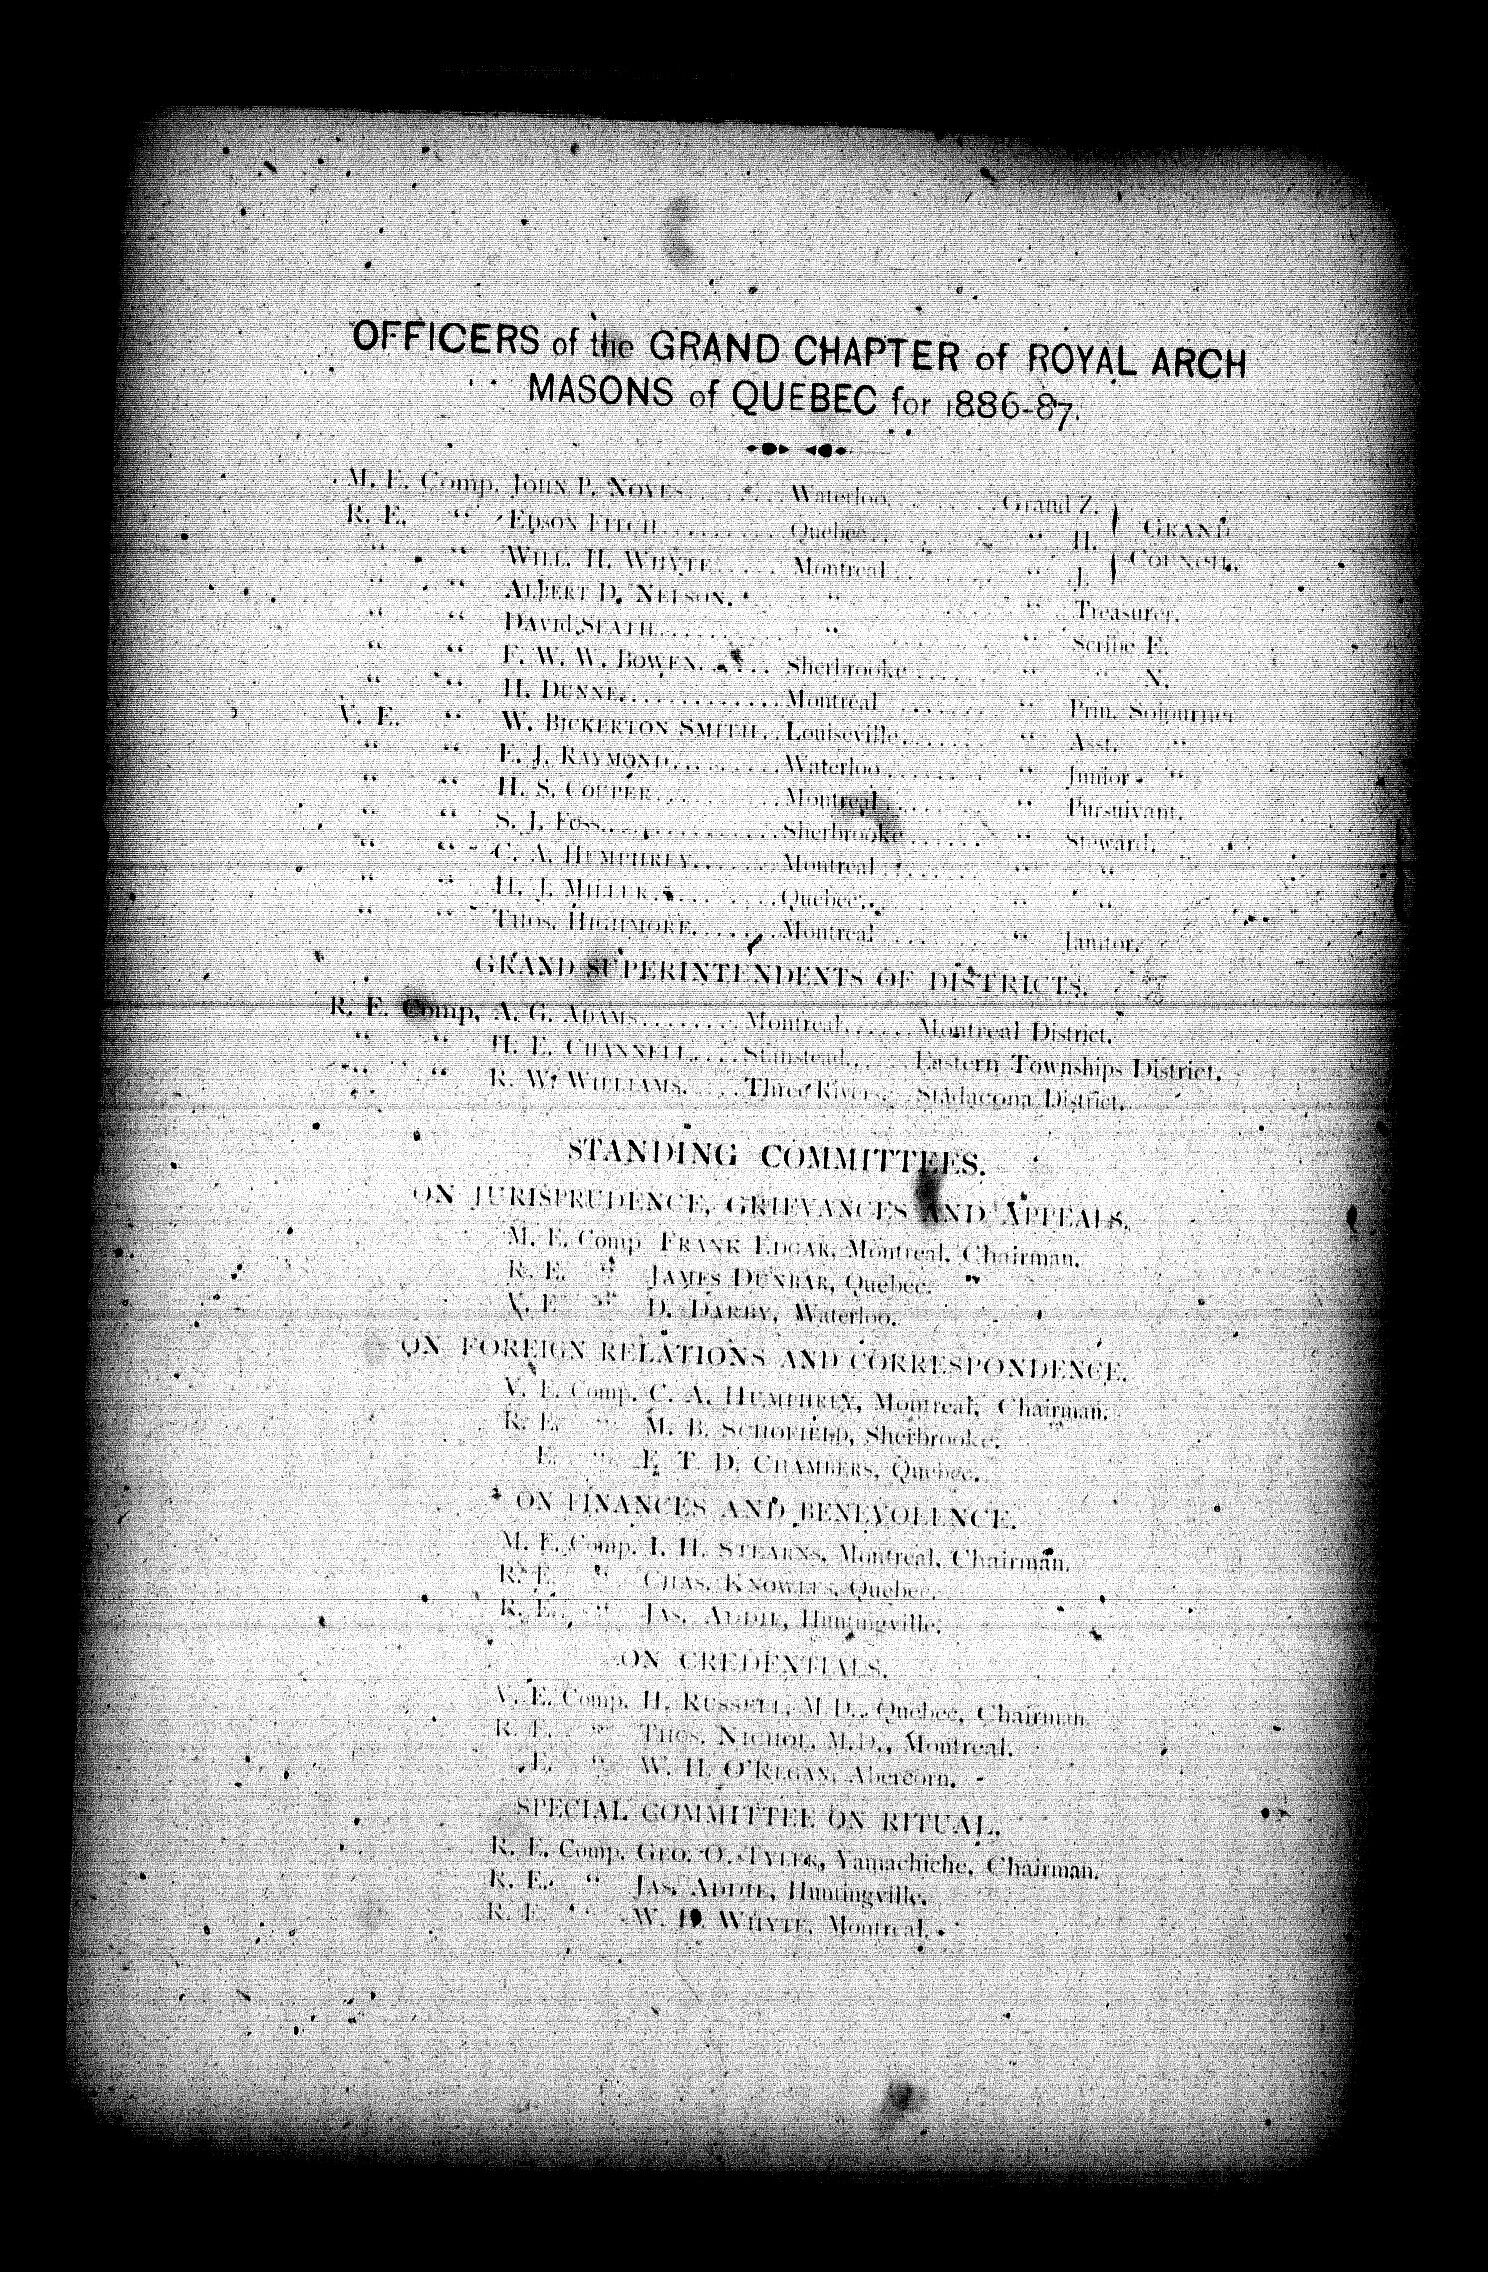 OFFICERS of the GRAND CHAPTER of ROYAL ARCH
MASONS of QUEBEC for 1886-87.
M. E. Comp. JOHN P. NOYES........Waterloo........Grand Z. } GRAND
R. E. “ EDSON FITCH..........Quebec.......... “ H. } COUNCIL.
“ “ WILL. H. WHYTE.....Montreal.......... “ J.
“ “ ALBERT D. NELSON. “ ....... “ Treasurer.
“ “ DAVID SEATH........... “ ....... “ Scribe E.
“ “ F. W. W. BOWEN.......Sherbrooke....... “ “ N.
“ “ H. DUNNE..............Montreal....... “ Prin. Sojourner
V. E. “ W. BICKERTON SMITH..Louiseville....... “ Asst. “
“ “ E. J. RAYMOND..........Waterloo......... “ Junior “
“ “ H. S. COUPER...........Montreal......... “ Pursuivant.
“ “ S. J. FOSS..............Sherbrooke....... “ Steward.
“ “ C. A. HUMPHREY.......Montreal......... “ “
“ “ H. J. MILLER..........Quebec.......... “ “
“ “ THOS. HIGHMORE.......Montreal......... “ Janitor.
GRAND SUPERINTENDENTS OF DISTRICTS.
R. E. Comp. A. G. ADAMS.........Montreal......Montreal District.
“ “ H. E. CHANNELL.....Stanstead.....Eastern Townships District.
“ “ R. W. WILLIAMS.....Three Rivers...Stadacona District.
STANDING COMMITTEES.
ON JURISPRUDENCE, GRIEVANCES AND APPEALS.
M. E. Comp FRANK EDGAR, Montreal, Chairman.
R. E. “ JAMES DUNBAR, Quebec.
V. E “ D. DARBY, Waterloo.
ON FOREIGN RELATIONS AND CORRESPONDENCE.
V. E. Comp. C. A. HUMPHREY, Montreal, Chairman.
R. E. “ M. B. SCHOFIELD, Sherbrooke.
E. “ E. T. D. CHAMBERS, Quebec.
ON FINANCES AND BENEVOLENCE.
M. E. Comp. I. H. STEARNS, Montreal, Chairman.
R. E. “ CHAS. KNOWLES, Quebec.
R. E. “ JAS. ADDIE, Huntingville.
ON CREDENTIALS.
V. E. Comp. H. RUSSELL, M.D., Quebec, Chairman.
R. E. “ THOS. NICHOL, M.D., Montreal.
E. “ W. H. O'REGAN, Abercorn.
SPECIAL COMMITTEE ON RITUAL.
R. E. Comp. GEO. O. TYLER, Yamachiche, Chairman.
R. E. “ JAS. ADDIE, Huntingville.
R. E “ W. H. WHYTE, Montreal.